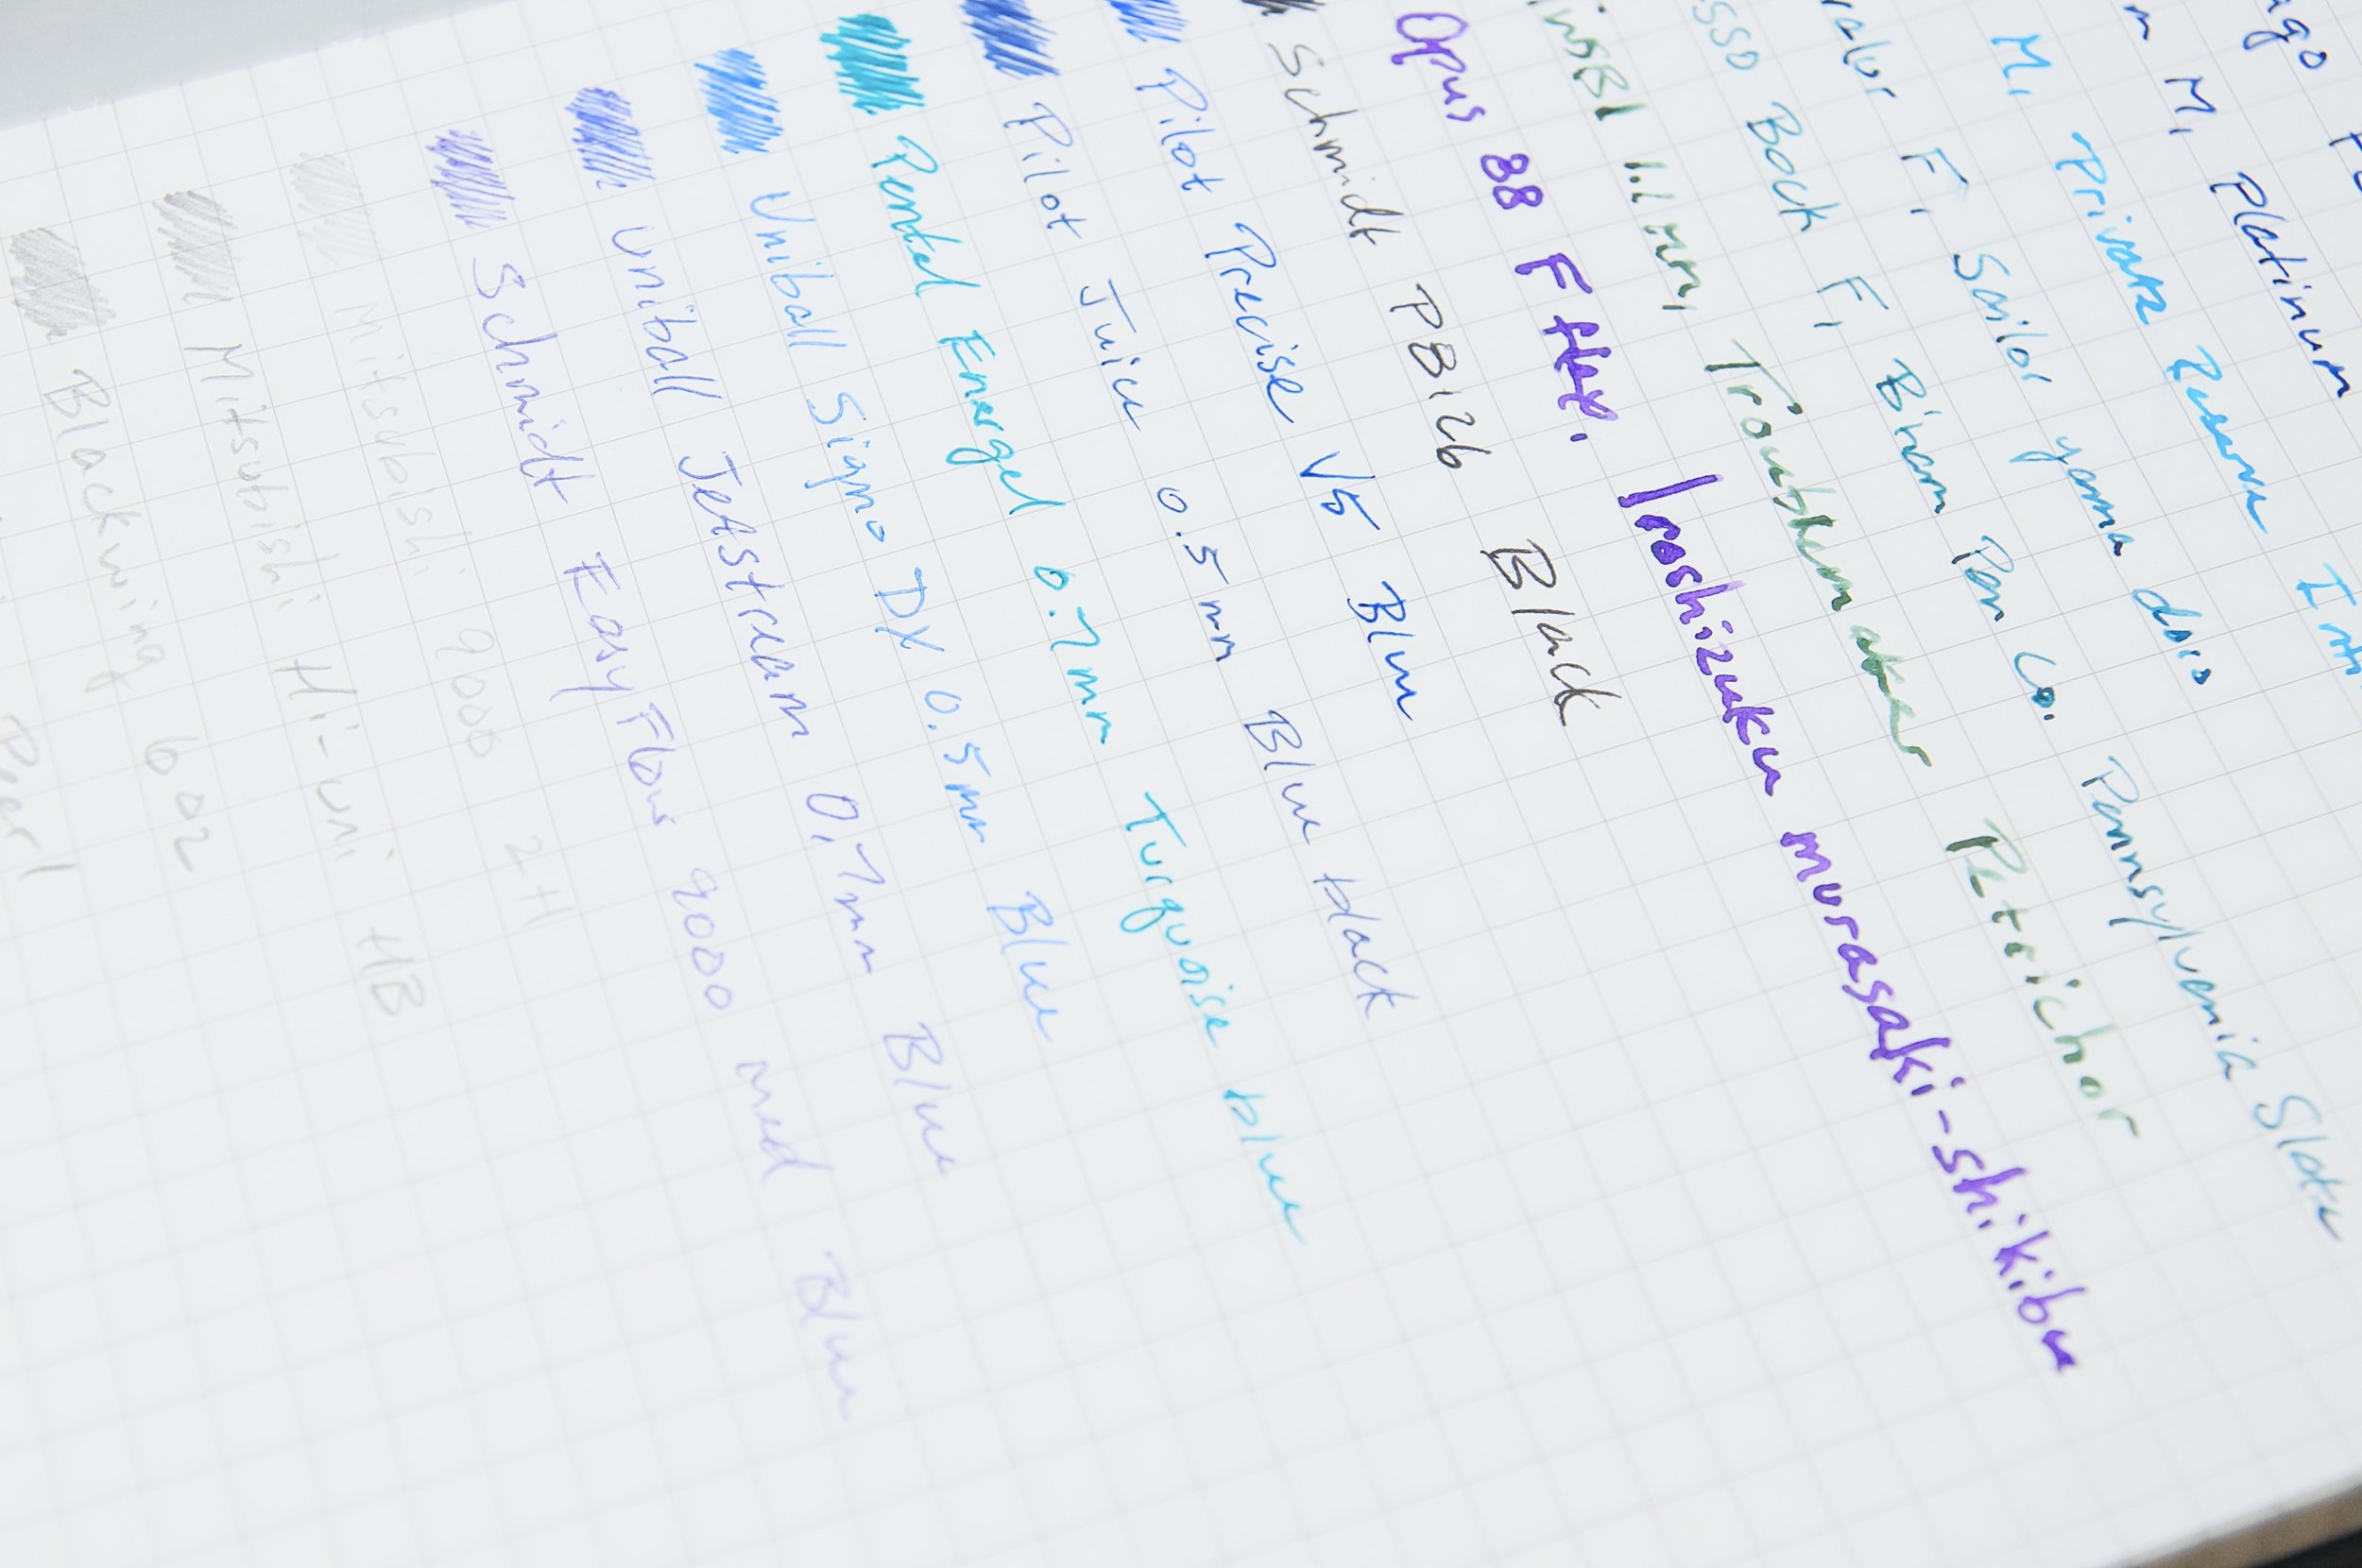 M, Platinum
M, Private Reserve
F, Sailor yama dori
Bock F, Birmingham Pen Co. Pennsylvania Slate
1.1 mm, Troublemaker Petrichor
Opus 88 F flex, Iroshizuku murasaki-shikibu
Schmidt P8126 Black
Pilot Precise V5 Blue
Pilot Juice 0.5 mm Blue black
Pentel Energel 0.7mm Turquoise blue
Uniball Signo DX 0.5mm Blue
Uniball Jetstream 0.7mm Blue
Schmidt EasyFlow 9000 med Blue
Mitsubishi 9000 2H
Mitsubishi Hi-uni HB
Blackwing 602
Pearl